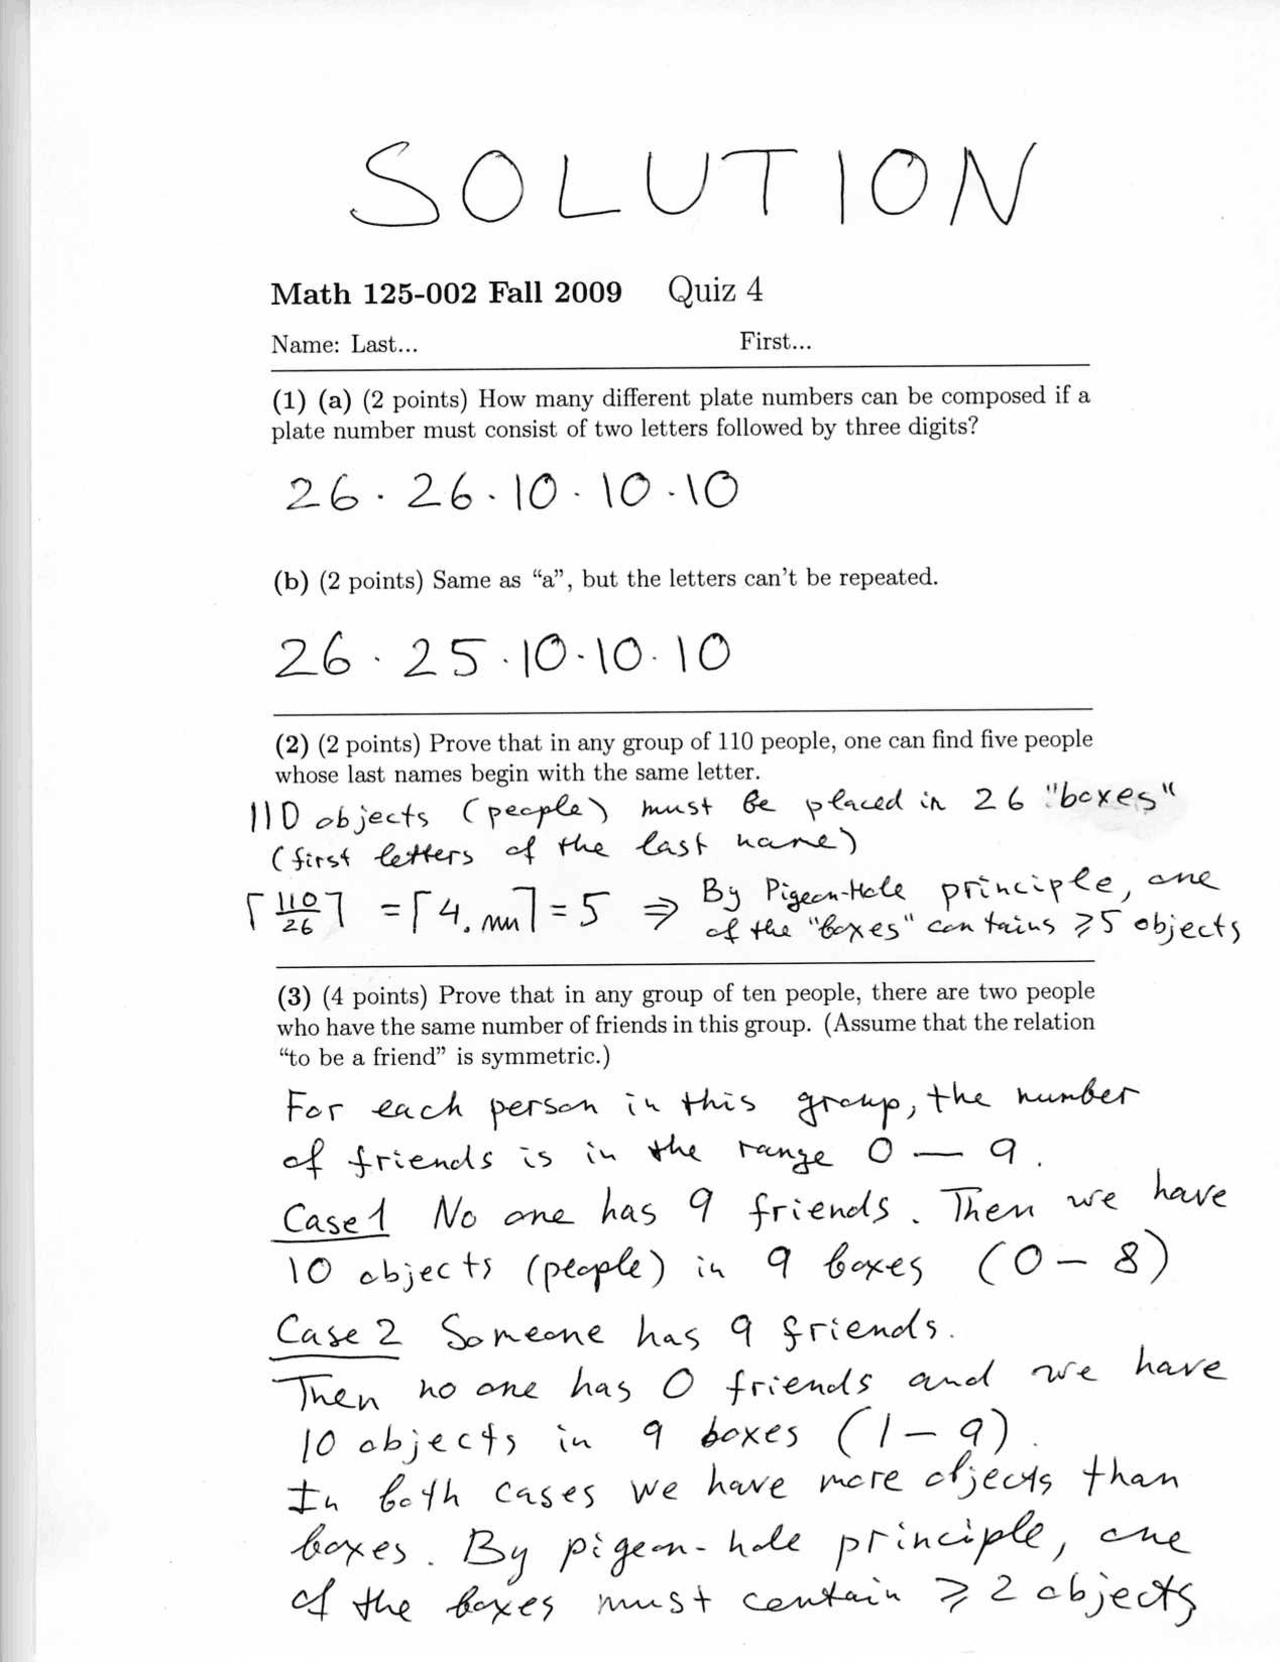 SOLUTION
Math 125-002 Fall 2009 Quiz 4
Name: Last... First...
(1) (a) (2 points) How many different plate numbers can be composed if a
plate number must consist of two letters followed by three digits?
26 · 26 · 10 · 10 · 10
(b) (2 points) Same as “a”, but the letters can’t be repeated.
26 · 25 · 10 · 10 · 10
(2) (2 points) Prove that in any group of 110 people, one can find five people
whose last names begin with the same letter.
110 objects (people) must be placed in 26 "boxes"
(first letters of the last name)
⌈110/26⌉ = ⌈4. ⌉ = 5 ⇒ By Pigeon-Hole principle, one
of the "boxes" contains ⩾ 5 objects
(3) (4 points) Prove that in any group of ten people, there are two people
who have the same number of friends in this group. (Assume that the relation
“to be a friend” is symmetric.)
For each person in this group, the number
of friends is in the range 0 — 9.
Case 1 No one has 9 friends. Then we have
10 objects (people) in 9 boxes (0 – 8)
Case 2 Someone has 9 friends.
Then no one has 0 friends and we have
10 objects in 9 boxes (1 – 9).
In both cases we have more objects than
boxes. By pigeon-hole principle, one
of the boxes must contain ⩾ 2 objects